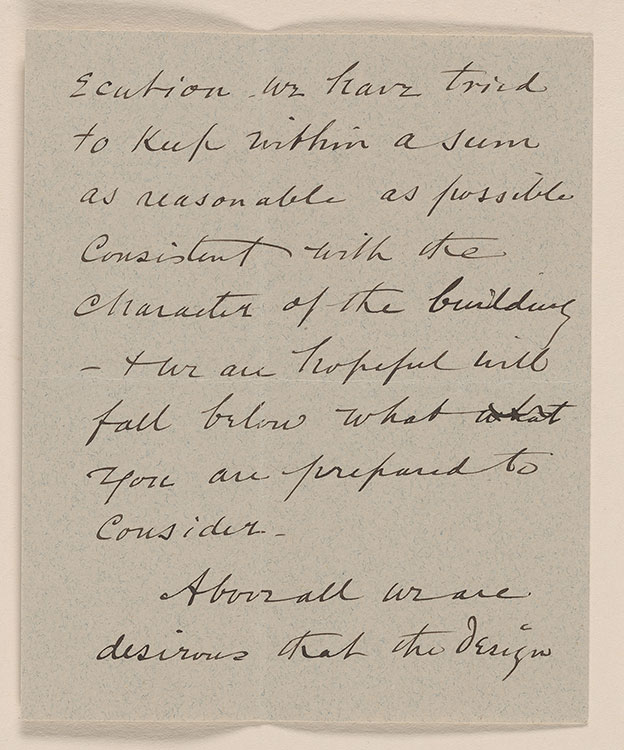 Ecution we have tried
to Keep within a sum
as reasonable as possible
Consistent with the
Character of the building
– + we are hopeful will
fall below what what
you are prepared to
Consider –
Above all we are
desirous that the Design